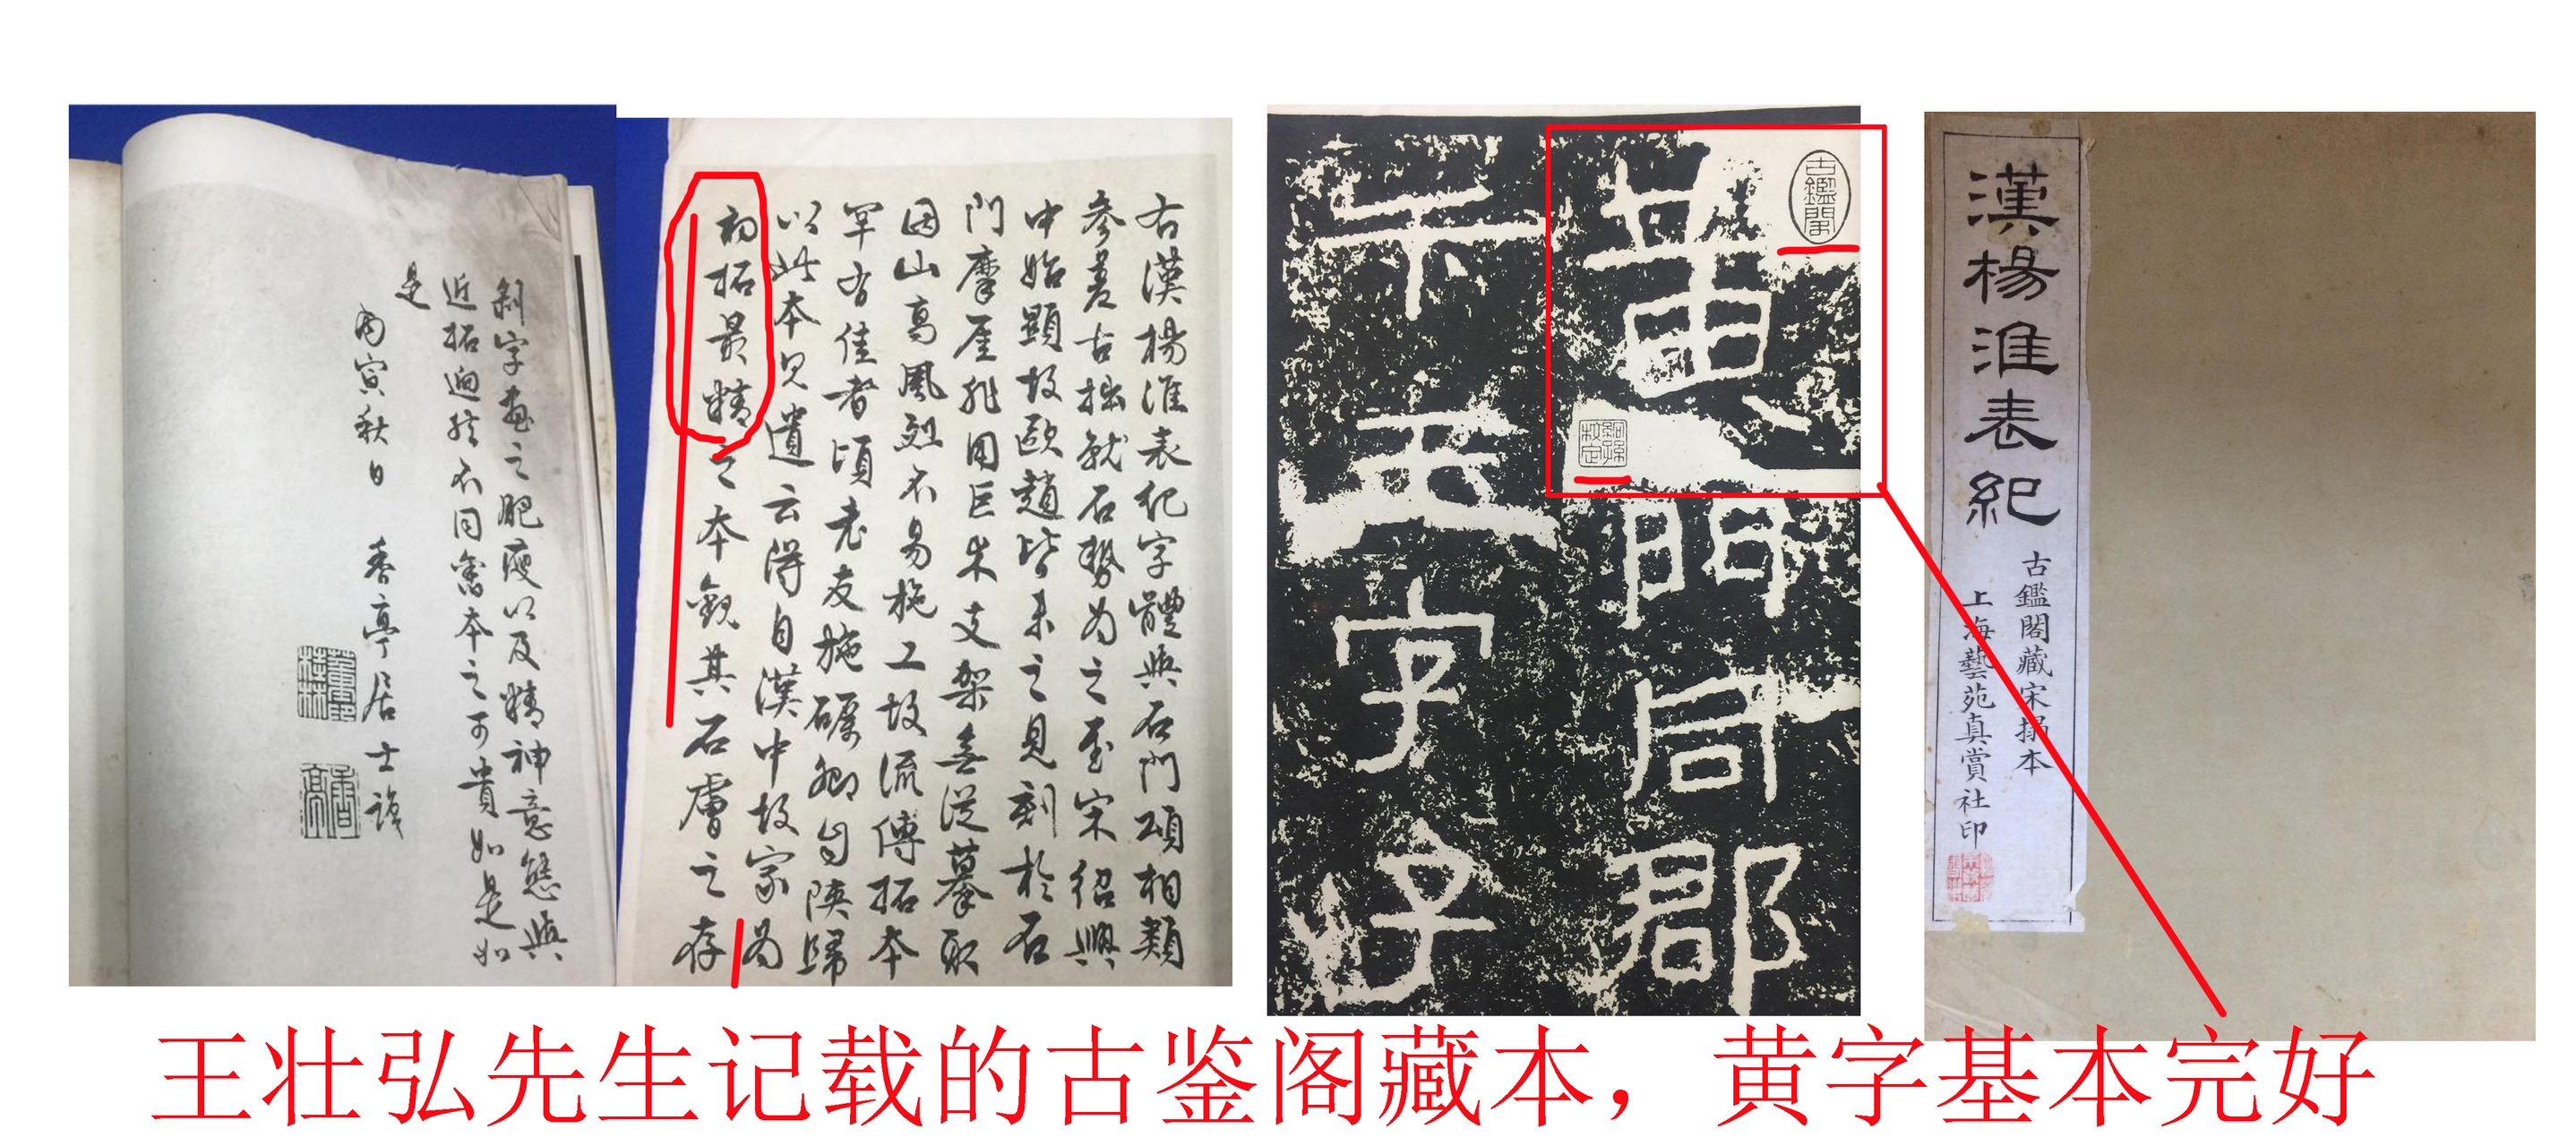 漢楊淮表紀
古鑑閣藏宋搨本
上海藝苑真賞社印
古鑑閣
黃門同郡
卞玉字子
右漢楊淮表紀字體與石門頌相類
参差古拙就石勢為之至宋紹興
中始顯故歐趙皆未之見刻於石
門摩厓非用巨木支架無從摹取
因山高風烈不易施工故流傳拓本
罕有佳者頃老友施礪卿自陝歸
以此本見遺云得自漢中故家為
初拓最精之本觀其石膚之存
剝字畫之肥瘦以及精神意態與
近拓迥然不同舊本之可貴如是如
是
丙寅秋日 香亭居士識
香亭
王壮弘先生记载的古鉴阁藏本，黄字基本完好